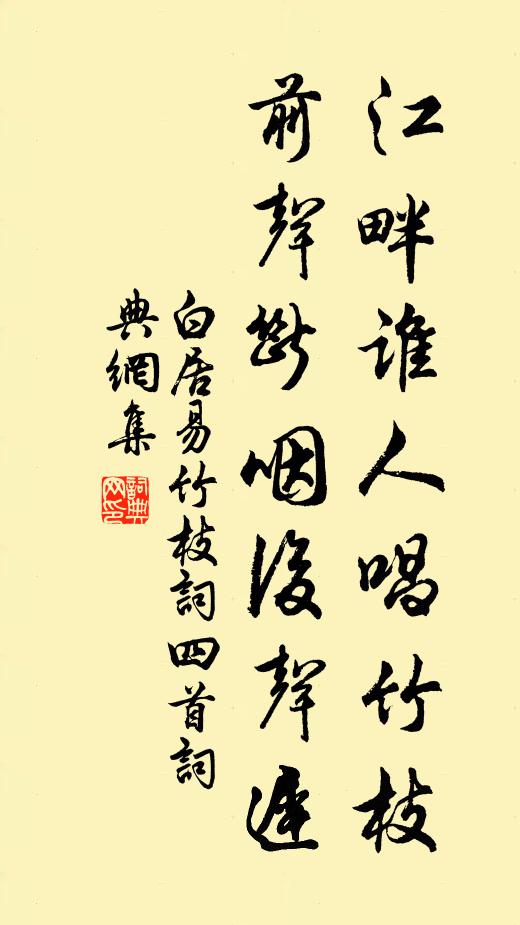 江畔誰人唱竹枝
前聲斷咽後聲遲
白居易竹枝詞四首詞
典網集
詞典網印